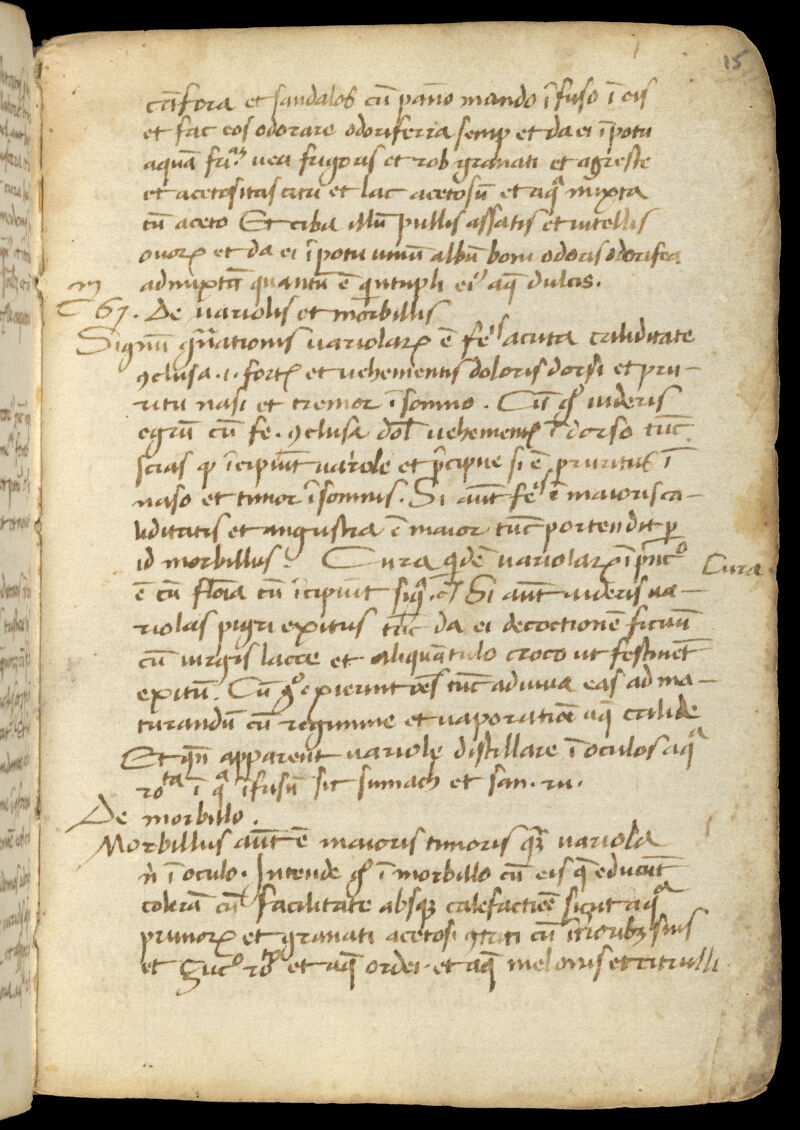 15
cāfora et sandalos cū pāno mando īfuso ī eis
et fac eos odorare odoriferia semp et da ei ī potu
aquā frīᵃ vea frigoris et rob granati et agreste
et acetositas citri et lac acetosū et aqᵃ mixta
cū aceto Et ciba illū pullis assatis et vitellis
ovorꝝ et da ei ī potu vinū albū boni odoris odorifea
admixtā quantū ē quintupli eiꝰ aq̄ dulcis.
67. De variolis et morbillis
Signū gn̄ationis variolarꝝ ē feˢ acuta caliditate
ꝯclusa .i. fortꝭ et vehementis doloris dorsi et pru-
ritu nasi et tremor ī somno. Cū gͦ videris
egrū cū fe. ꝯclusa dol̄ vehementꝭ ī dorso tūc
scias ꝙ īcipiūt variole et p̄cipue si ē pruritus ī
naso et timor ī somnis. Si aūt feˢ ē maioris ca-
liditatis et angustia ē maior tūc portendit p
id morbillus. Cura qͥdē variolarꝝ ī pn̄cͦ
Cura
ē cū fleb̄ia cū īcipiūt Si aūt videris va-
riolas pigri exitus tūc da ei decoctionē ficuū
cū virgis lacce et aliquātulo croco ut festinēt
exitū. Cū gͦ exierint oēs tūc adiuva eas ad ma-
turandū cū regimine et vaporatiōe aq̄ calide
Et qn̄ apparent variole distillare ī oculos aqᵃ
roᵗᵃ ī qᵃ īfusū sit sumach et san. ru.
De morbillo.
Morbillus aūt ē maioris timoris qͣꝫ variola
n̄ ī oculo. Intende gͦ ī morbillo cū eis q̄ educūt
colerā cū facilitate absqꝫ calefactiōe sicut aqᵃ
prunorꝝ et granati acetosi ꝯtriti cū īterioribꝫ suis
et Sucͦ et aq̄ ordei. et aq̄ melonis et citrulli